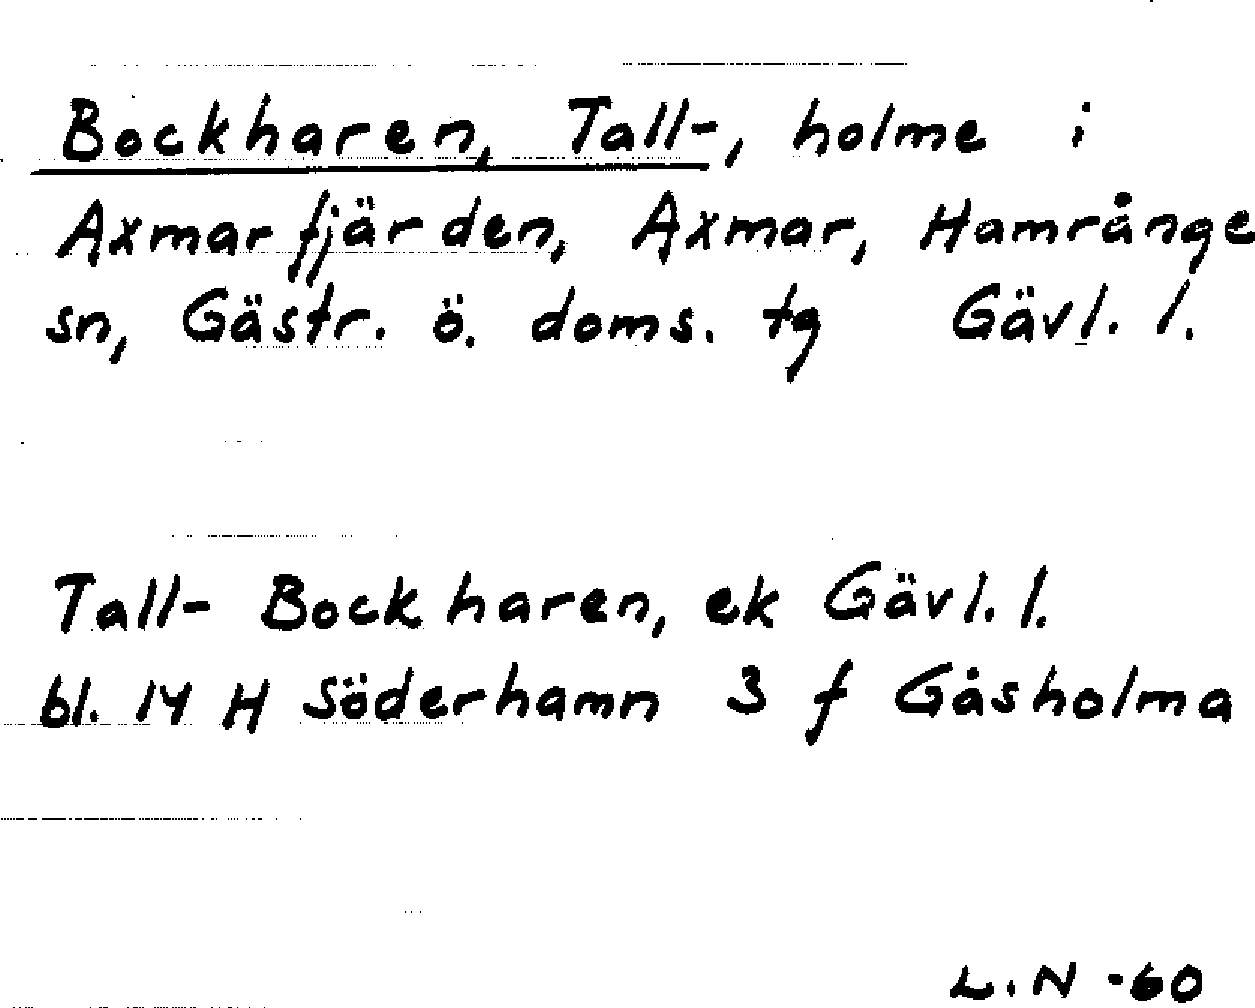 Bockharen, Tall-, holme i
Axmarfjärden, Axmar, Hamrånge
sn, Gästr. ö. doms. tg Gävl. l.
Tall- Bockharen, ek Gävl. l.
bl. 14 H Söderhamn 3 f Gåsholma
L.N -60